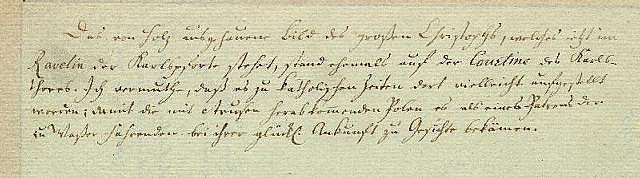 Das von Holz ausgehauene Bild des großen Christophs, welches itzt im
Ravelin der Karlspforte stehet, stand ehemals auf der Courtine des Karls-
thores. Ich vermuthe, daß es zu katholischen Zeiten dort vielleicht aufgestellt
worden; damit die mit Strusen herabkommenden Polen es als einen Patron der
zu Waßer fahrenden bei ihrer glückl. Ankunft zu Gesichte bekämen.